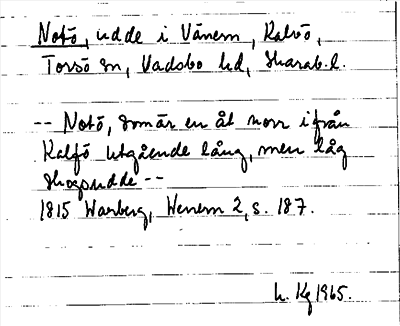 Notö, udde i Vänern, Kalvö,
Torsö sn, Vadsbo hd, Skarab.l.
-- Notö, som är en åt norr ifrån
Kalfö utgående lång, men låg
skogsudde --
1815 Warberg, Wenern 2, s. 187.
h. Kg 1965.